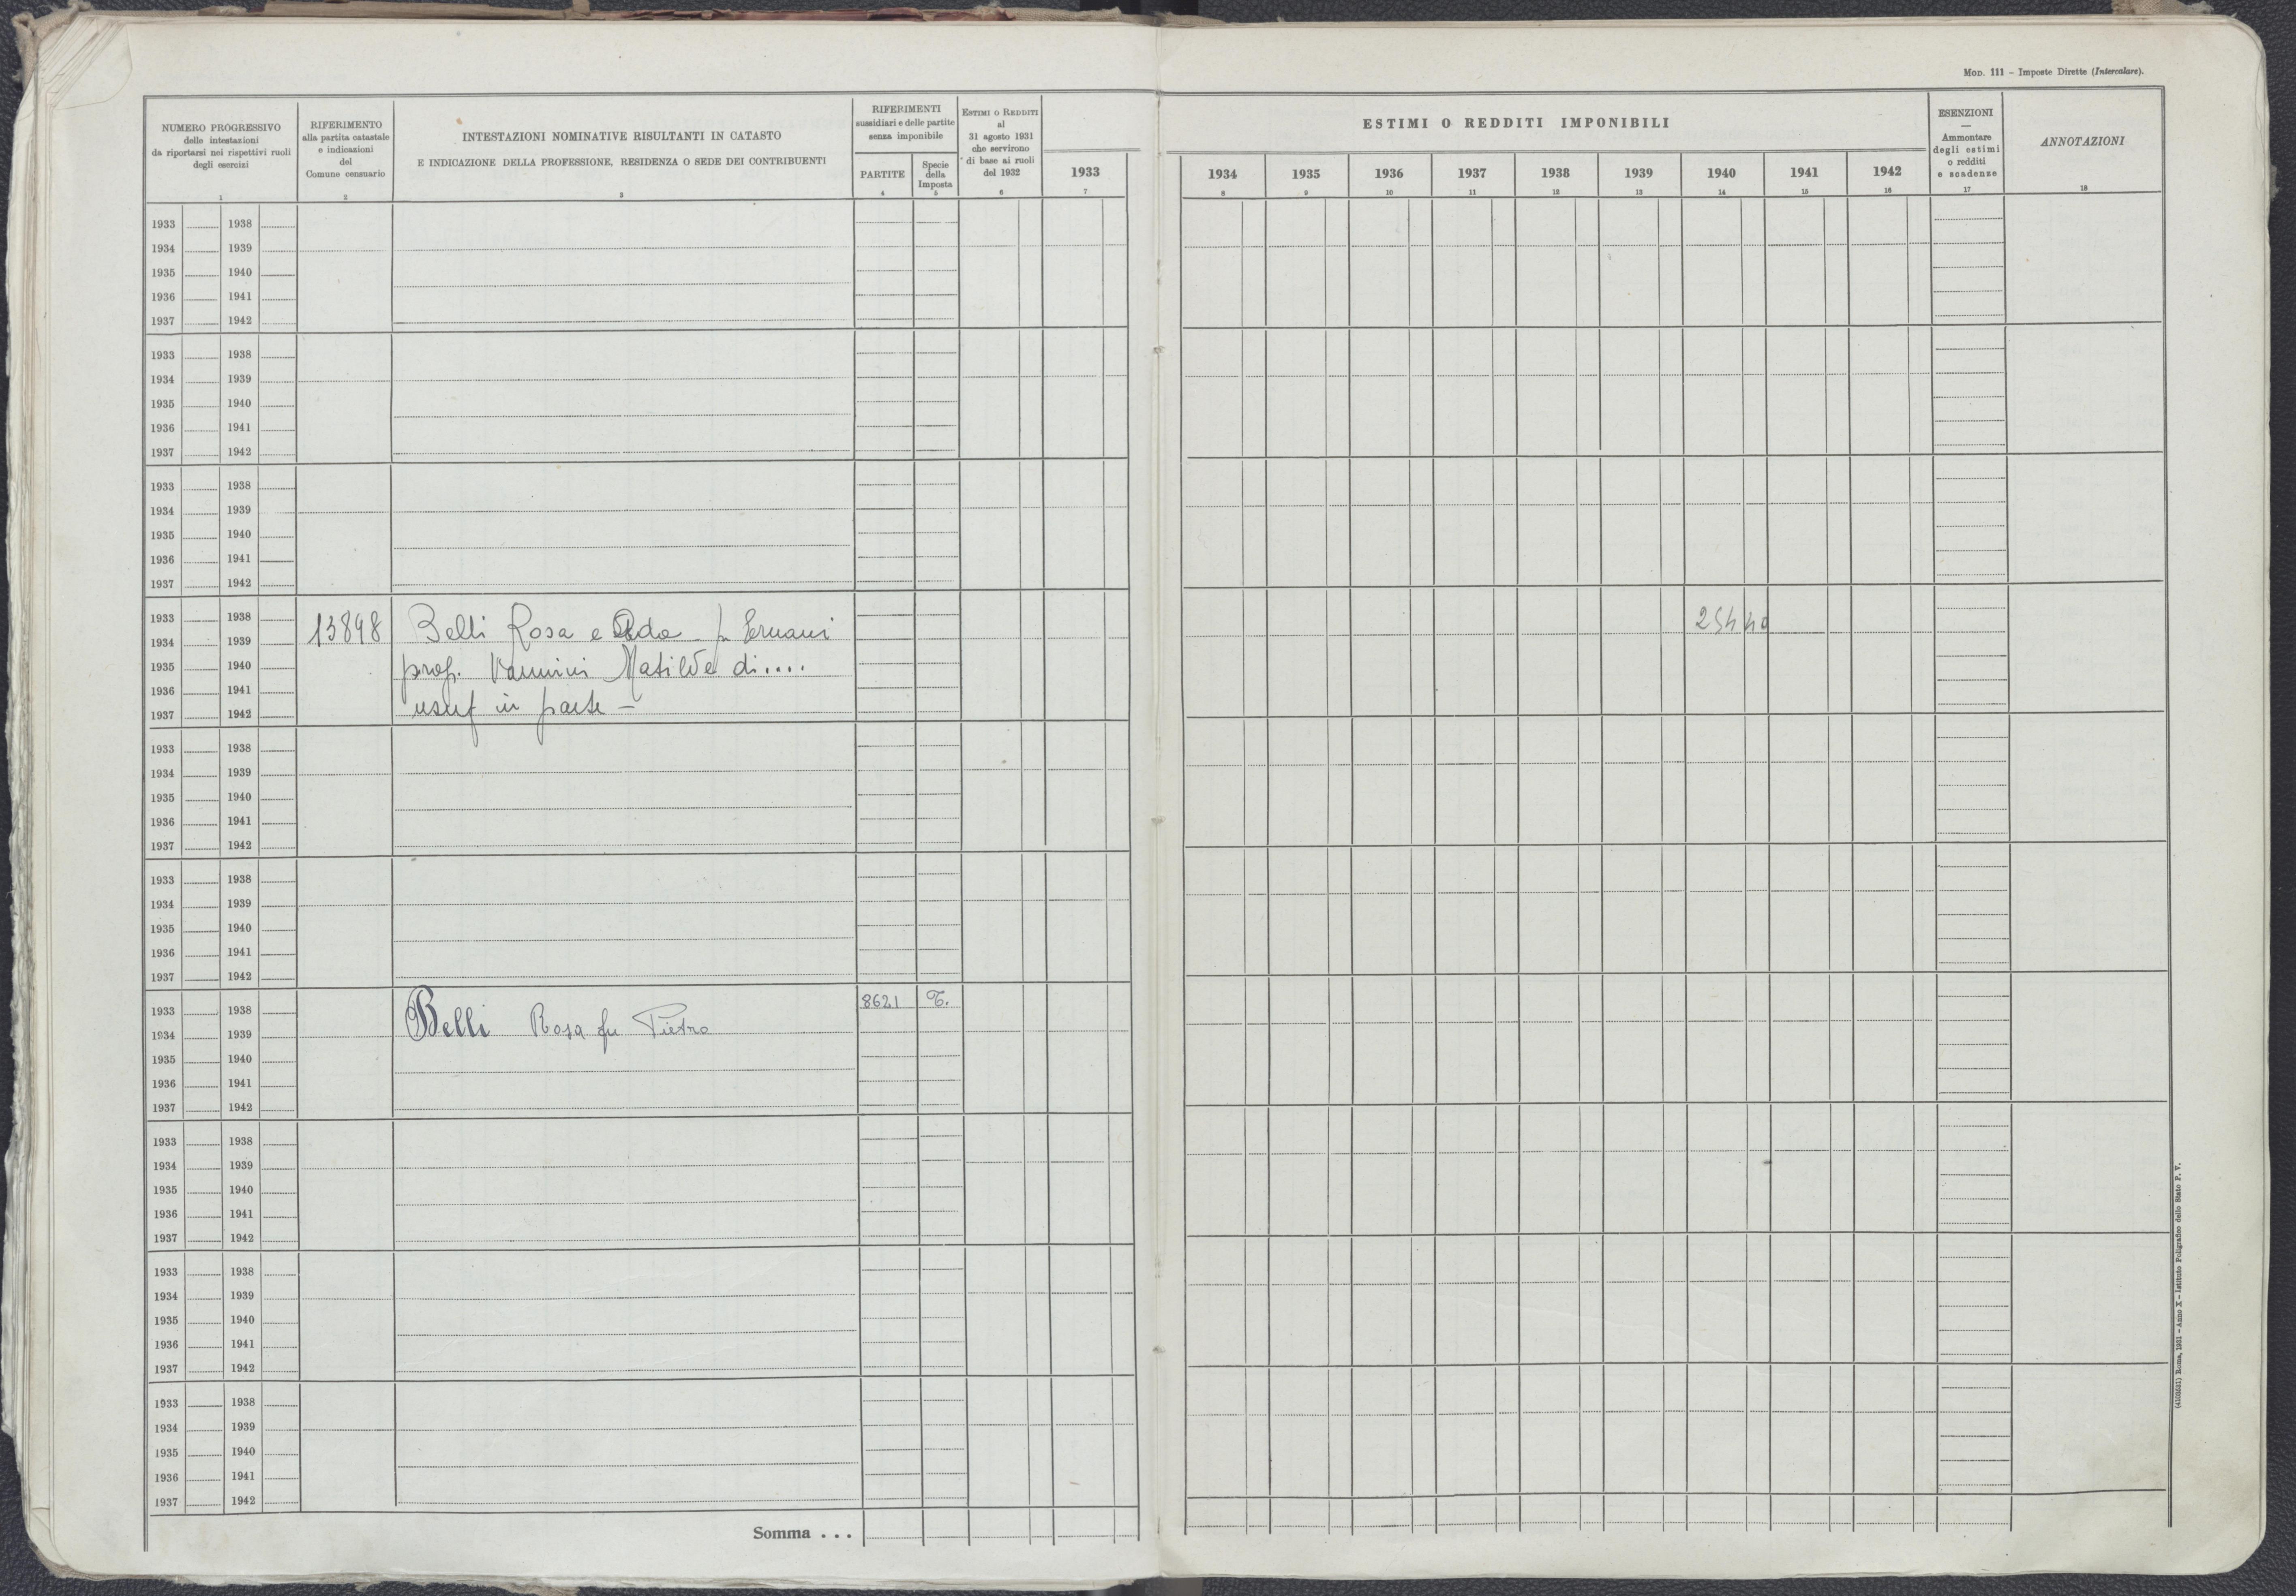 MOD. 111 – Imposte Dirette (Intercalare).
NUMERO PROGRESSIVO
delle intestazioni
da riportarsi nei rispettivi ruoli
degli esercizi
1
RIFERIMENTO
alla partita catastale
e indicazioni
del
Comune censuario
2
INTESTAZIONI NOMINATIVE RISULTANTI IN CATASTO
E INDICAZIONE DELLA PROFESSIONE, RESIDENZA O SEDE DEI CONTRIBUENTI
3
RIFERIMENTI
sussidiari e delle partite
senza imponibile
PARTITE
4
Specie
della
Imposta
5
ESTIMI O REDDITI
al
31 agosto 1931
che servirono
di base ai ruoli
del 1932
6
1933
7
ESTIMI O REDDITI IMPONIBILI
1934 1935 1936 1937 1938 1939 1940 1941 1942
8 9 10 11 12 13 14 15 16
ESENZIONI
—
Ammontare
degli estimi
o redditi
e scadenze
17
ANNOTAZIONI
18
1933 1938
1934 1939
1935 1940
1936 1941
1937 1942
1933 1938
1934 1939
1935 1940
1936 1941
1937 1942
1933 1938
1934 1939
1935 1940
1936 1941
1937 1942
1933 1938
1934 1939 13898 Belli Rosa e Ada fu Ernani
1935 1940 prop. Vannini Matilde di....
1936 1941
1937 1942 usuf in parte –
1933 1938
1934 1939
1935 1940
1936 1941
1937 1942
1933 1938
1934 1939
1935 1940
1936 1941
1937 1942
1933 1938 8621 T.
1934 1939 Belli Rosa fu Pietro
1935 1940
1936 1941
1937 1942
1933 1938
1934 1939
1935 1940
1936 1941
1937 1942
1933 1938
1934 1939
1935 1940
1936 1941
1937 1942
1933 1938
1934 1939
1935 1940
1936 1941
1937 1942
Somma . . .
(4100631) Roma, 1931 – Anno X – Istituto Poligrafico dello Stato P. V.